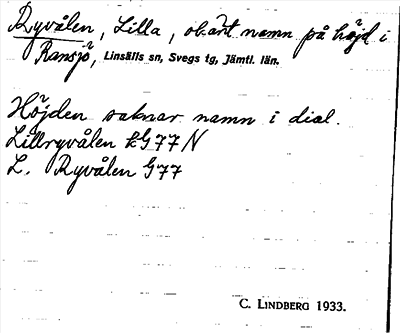 Ryvålen, Lilla, obänt namn på höjd i
Ransjö, Linsälls sn, Svegs tg, Jämtl. län.
Höjden saknar namn i dial.
Lillryvålen G77 N
L. Ryvålen G77
C. LINDBERG 1933.